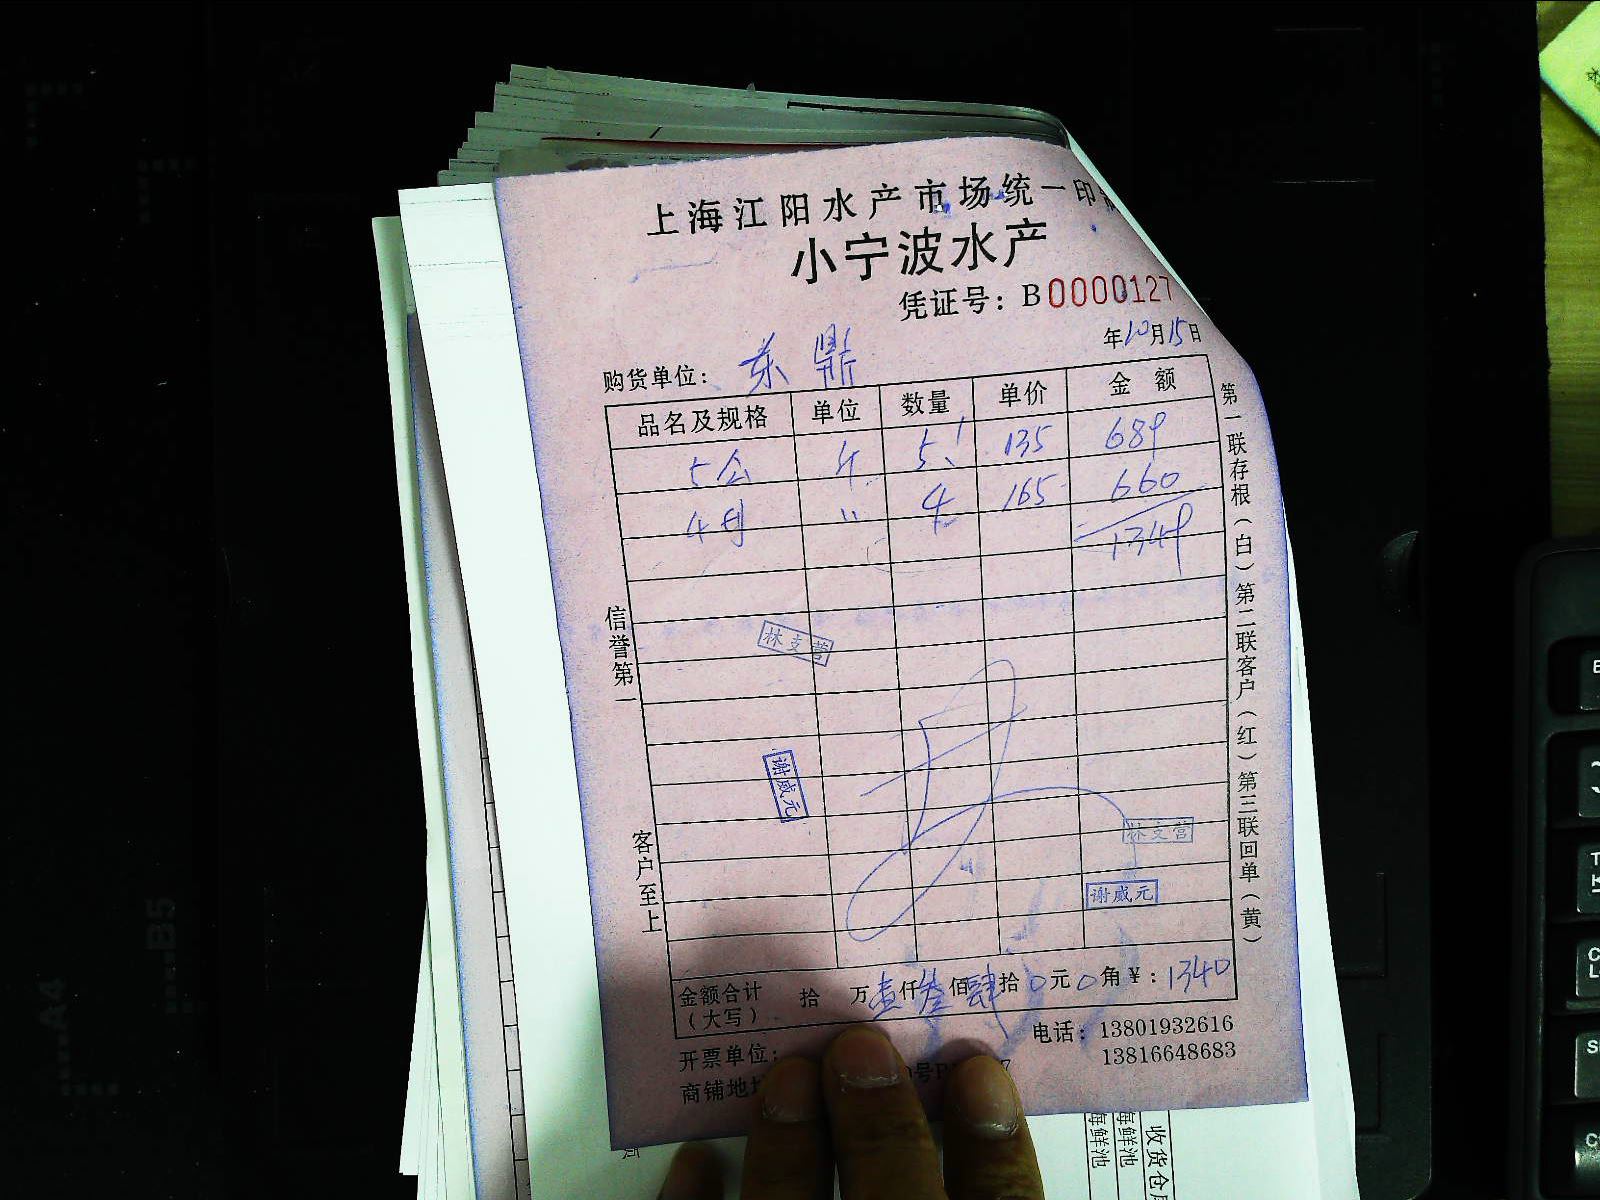 上海江阳水产市场统一印
小宁波水产
凭证号：B0000127
年10月15日
购货单位：东鼎
品名及规格 单位 数量 单价 金额
5公 斤 5.1 135 689
4 〃 4 165 660
1349
信誉第一
客户至上
第一联存根（白）第二联客户（红）第三联回单（黄）
林支营
谢威元
林支营
谢威元
金额合计（大写） 拾 万壹仟叁佰肆拾0元0角￥：1340
开票单位：
电话：13801932616
13816648683
商铺地
号
7
收货仓
海鲜池
海鲜池
A4
B5